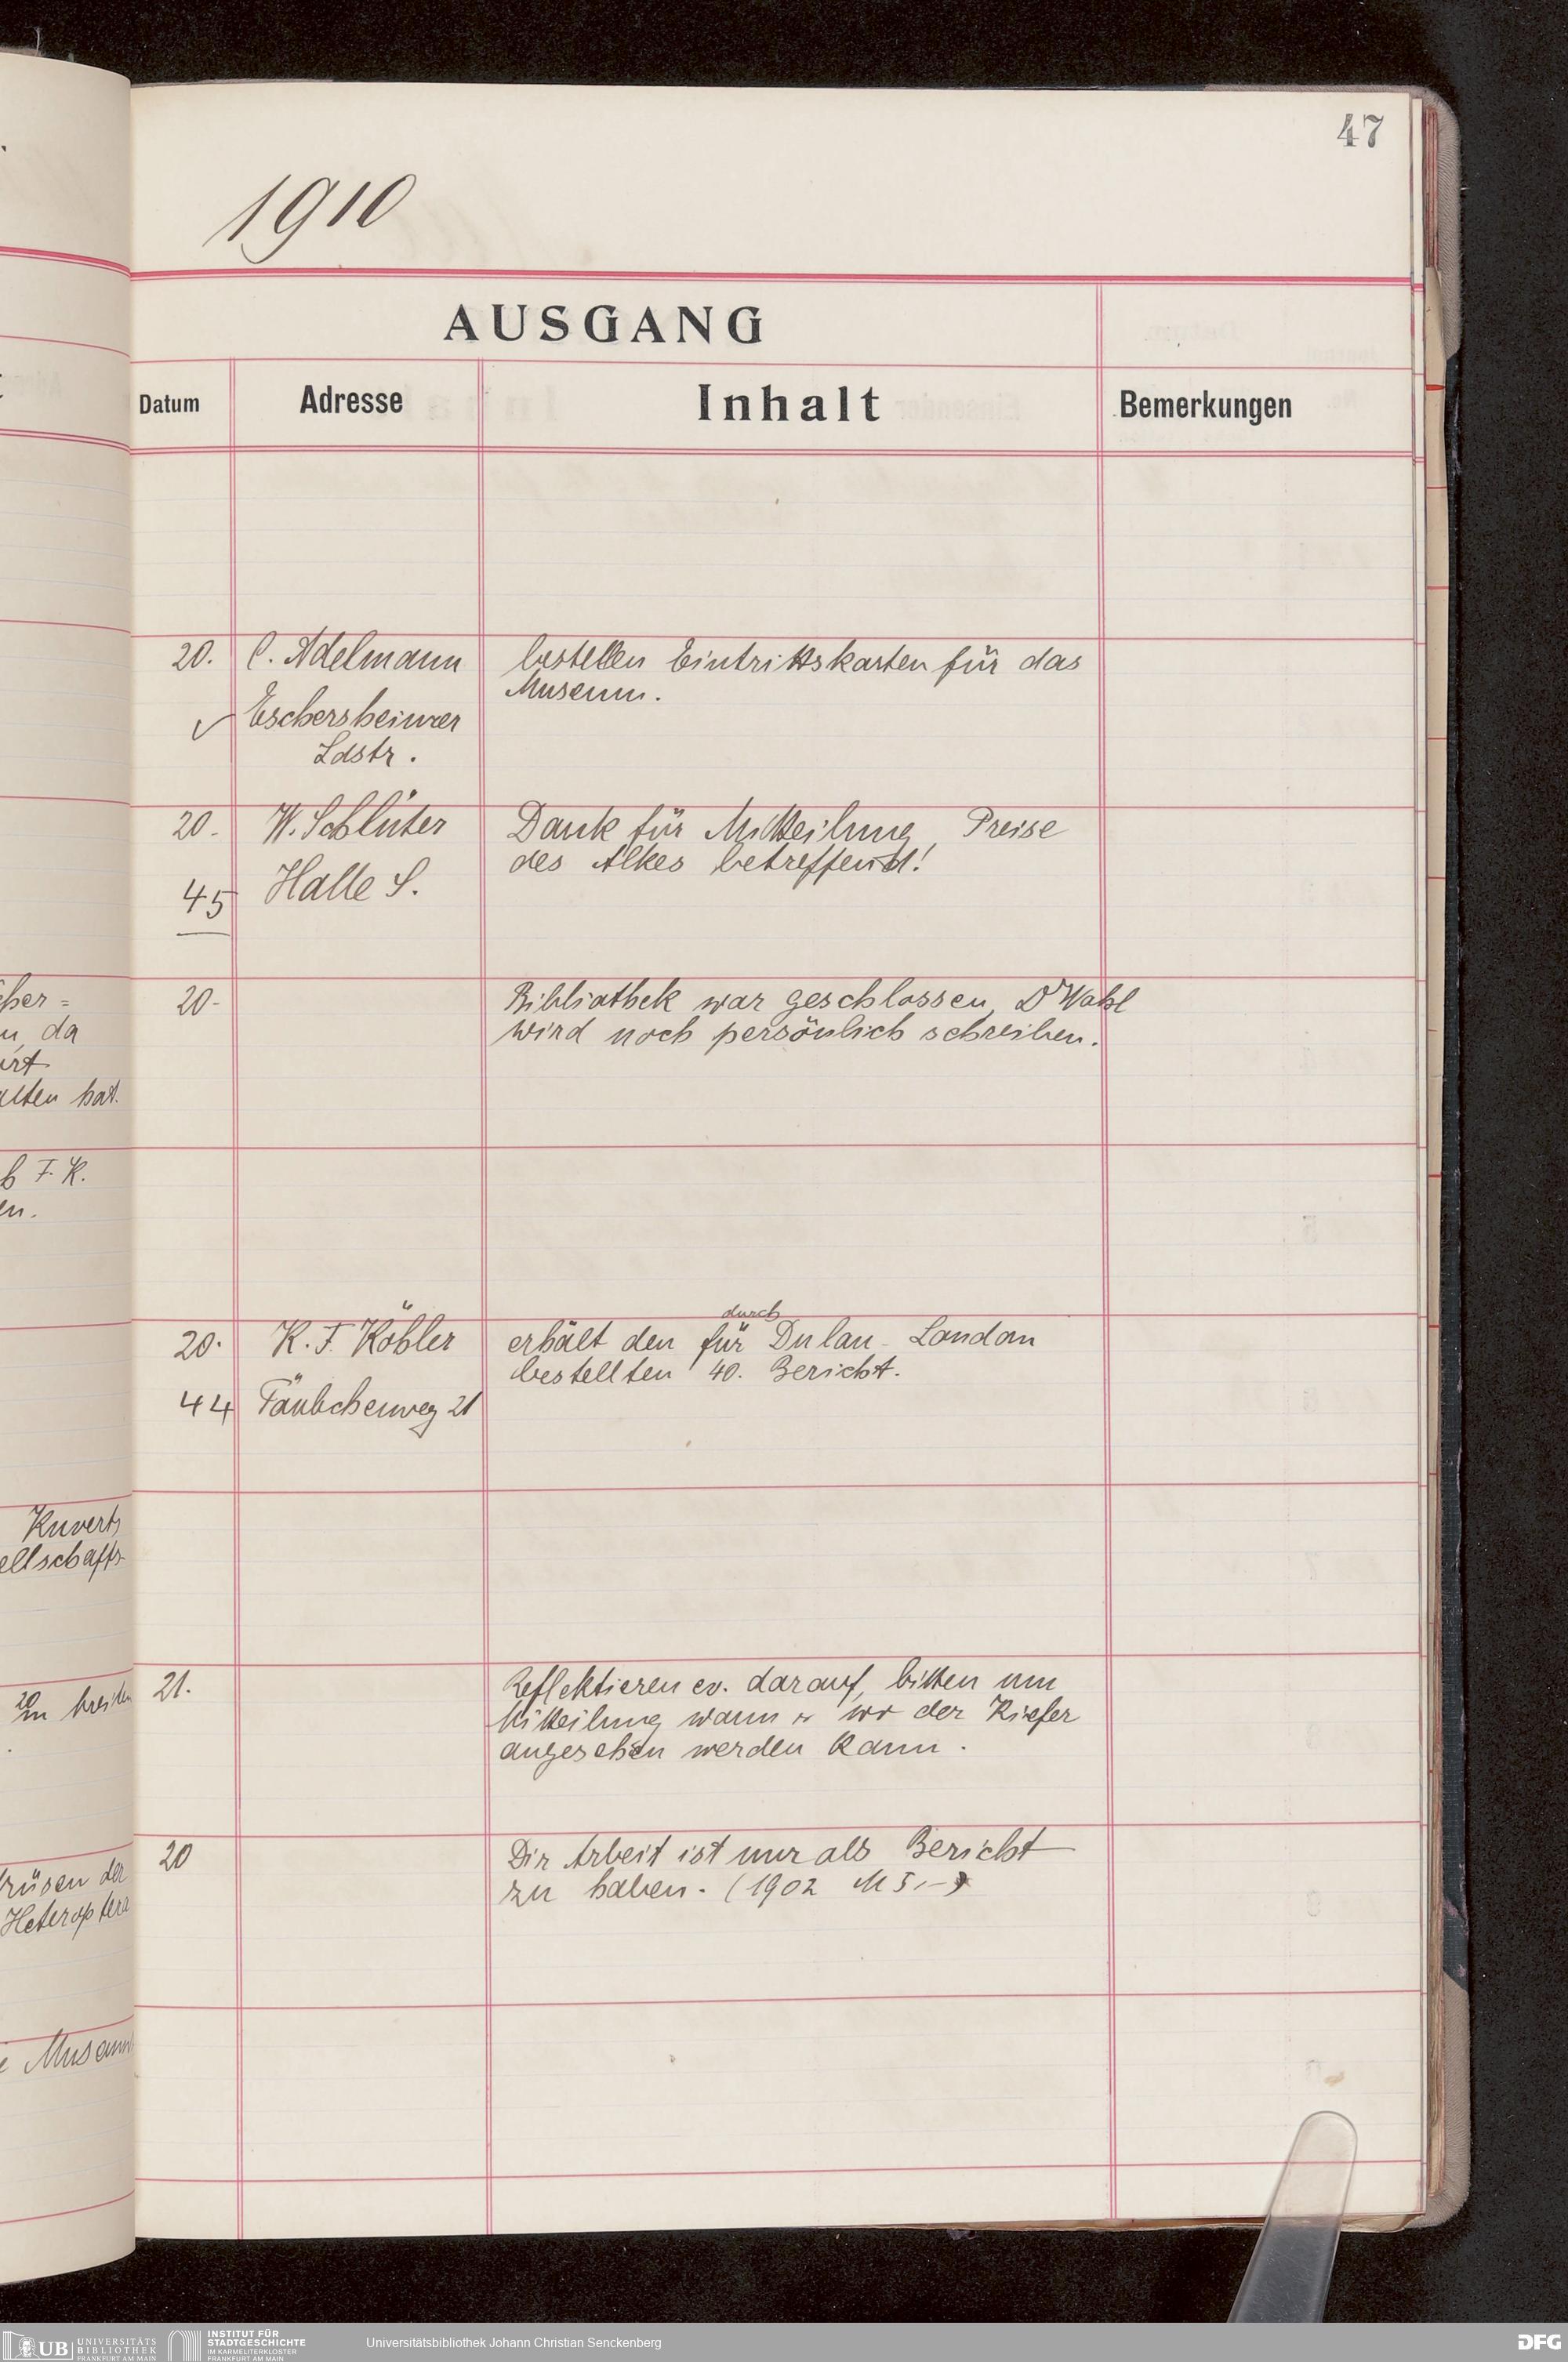 47
1910
AUSGANG
Datum Adresse Inhalt Bemerkungen
20. C. Adelmann bestellen Eintrittskarten für das
Museum.
Eschersheimer
Ldstr.
20. W. Schlüter Dank für Mitteilung, Preise
des Alkes betreffend!
45 Halle S.
20. Bibliothek war geschlossen, Dr Wahl
wird noch persönlich schreiben.
durch
20. K. F. Köhler erhält den für Dulau London
bestellten 40. Bericht.
44 Täubchenweg 21
21. Reflektieren ev. darauf, bitten um
Mitteilung wann u wo der Kiefer
angesehen werden kann.
20 Die Arbeit ist nur als Bericht
zu haben. (1902 M 5,-)
da
alten hat.
F. K.
Kuverts
ellschafts
rüsen der
Heteroptera
UB UNIVERSITÄTS
BIBLIOTHEK
FRANKFURT AM MAIN
INSTITUT FÜR
STADTGESCHICHTE
IM KARMELITERKLOSTER
FRANKFURT AM MAIN
Universitätsbibliothek Johann Christian Senckenberg
DFG